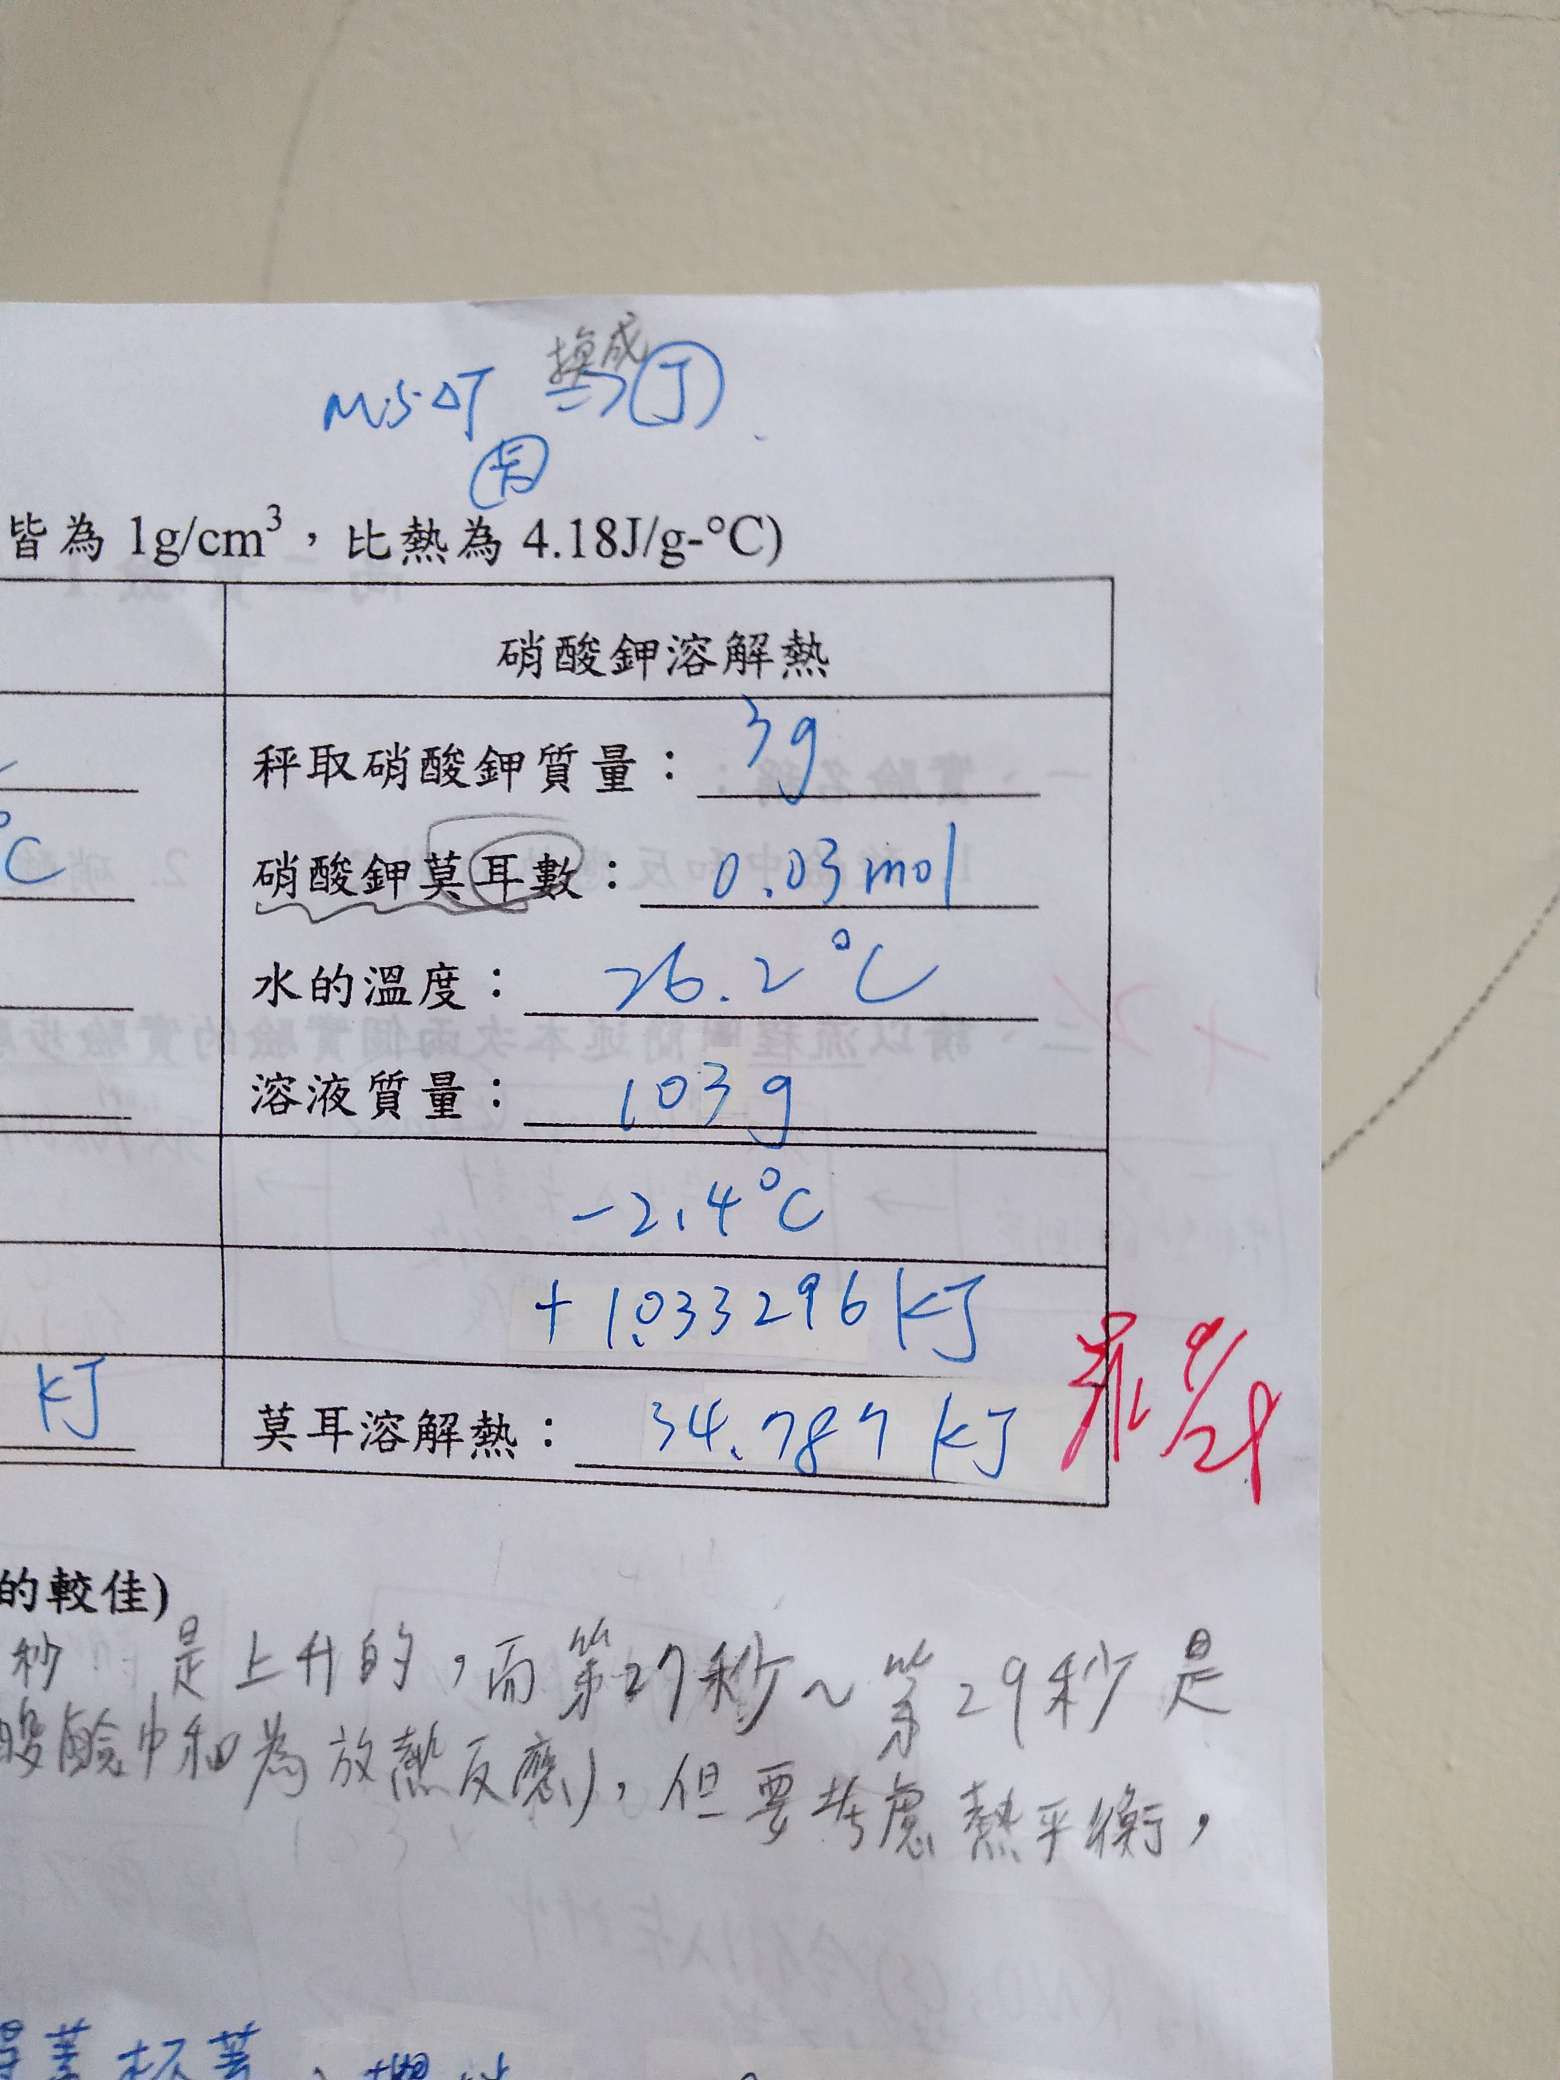 M.S.ΔT 換成 → J
卡
皆為 1g/cm³，比熱為 4.18J/g-°C)
硝酸鉀溶解熱
秤取硝酸鉀質量： 3g
°C 硝酸鉀莫耳數： 0.03 mol
水的溫度： 26.2°C
溶液質量： 103g
-2.4°C
+1.033296 kJ
kJ 莫耳溶解熱： 34.787 kJ
的較佳)
秒 是上升的，而第27秒~第29秒是
酸鹼中和為放熱反應)，但要考慮熱平衡，